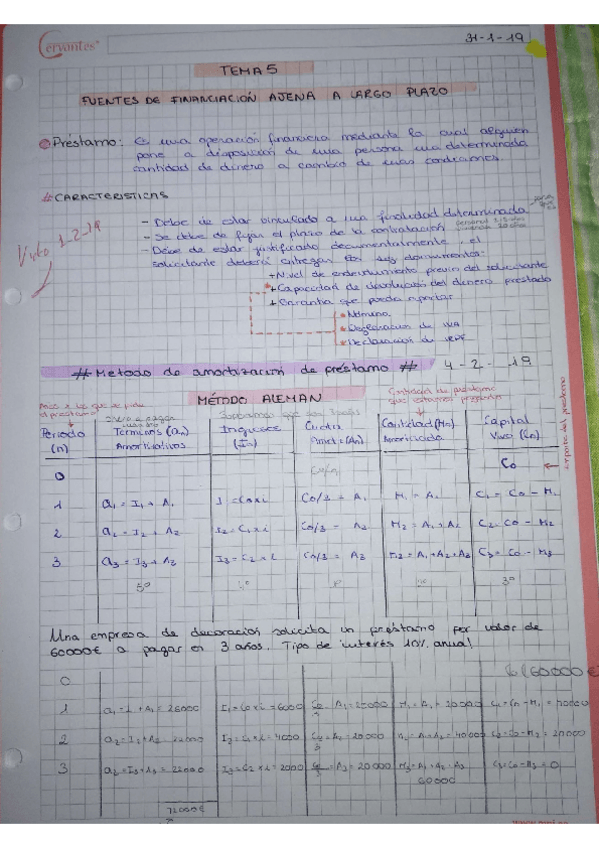 Cervantes
31-1-19
TEMA 5
FUENTES DE FINANCIACIÓN AJENA A LARGO PLAZO
Préstamo: Es una operación financiera mediante la cual alguien
pone a disposición de una persona una determinada
cantidad de dinero a cambio de unas condiciones.
CARACTERISTICAS
- Debe de estar vinculado a una finalidad determinada
- Se debe de fijar el plazo de la contratación
- Debe de estar justificado documentalmente, el
solicitante deberá entregar
+ Nivel de endeudamiento previo del solicitante
+ Capacidad de devolución del dinero prestado
+ Garantía que pueda aportar
Nómina
Declaración de IVA
Declaración de IRPF
Visto 1-2-19
# Metodo de amortización de préstamo # 4-2-19
MÉTODO ALEMAN
importe del prestamo
Periodo (n) Términos (an) Amortizativos Intereses (In) Cuota Amort (An) Cantidad (Mn) Amortizada Capital Vivo (Co)
0 Co
1 a1 = I1 + A1 I = Co x i Co/3 = A1 M1 = A1 C1 = Co - M1
2 a2 = I2 + A2 I2 = C1 x i Co/3 = A2 M2 = A1 + A2 C2 = Co - M2
3 a3 = I3 + A3 I3 = C2 x i Co/3 = A3 M3 = A1 + A2 + A3 C3 = Co - M3
5º 3º
Una empresa de decoración solicita un préstamo por valor de
60000€ a pagar en 3 años. Tipo de interés 10% anual
0 (60000€)
1 I1 = Co x i = 6000 A1 = 20000 M1 = A1 = 20000
2 I2 = C1 x i = 4000 A2 = 20000 M2 = A1 + A2 = 40000 C2 = Co - M2 = 20000
3 a3 = I3 + A3 = 22000 I3 = C2 x i = 2000 A3 = 20000 M3 = A1 + A2 + A3 C3 = Co - M3 = 0
60000
72000€